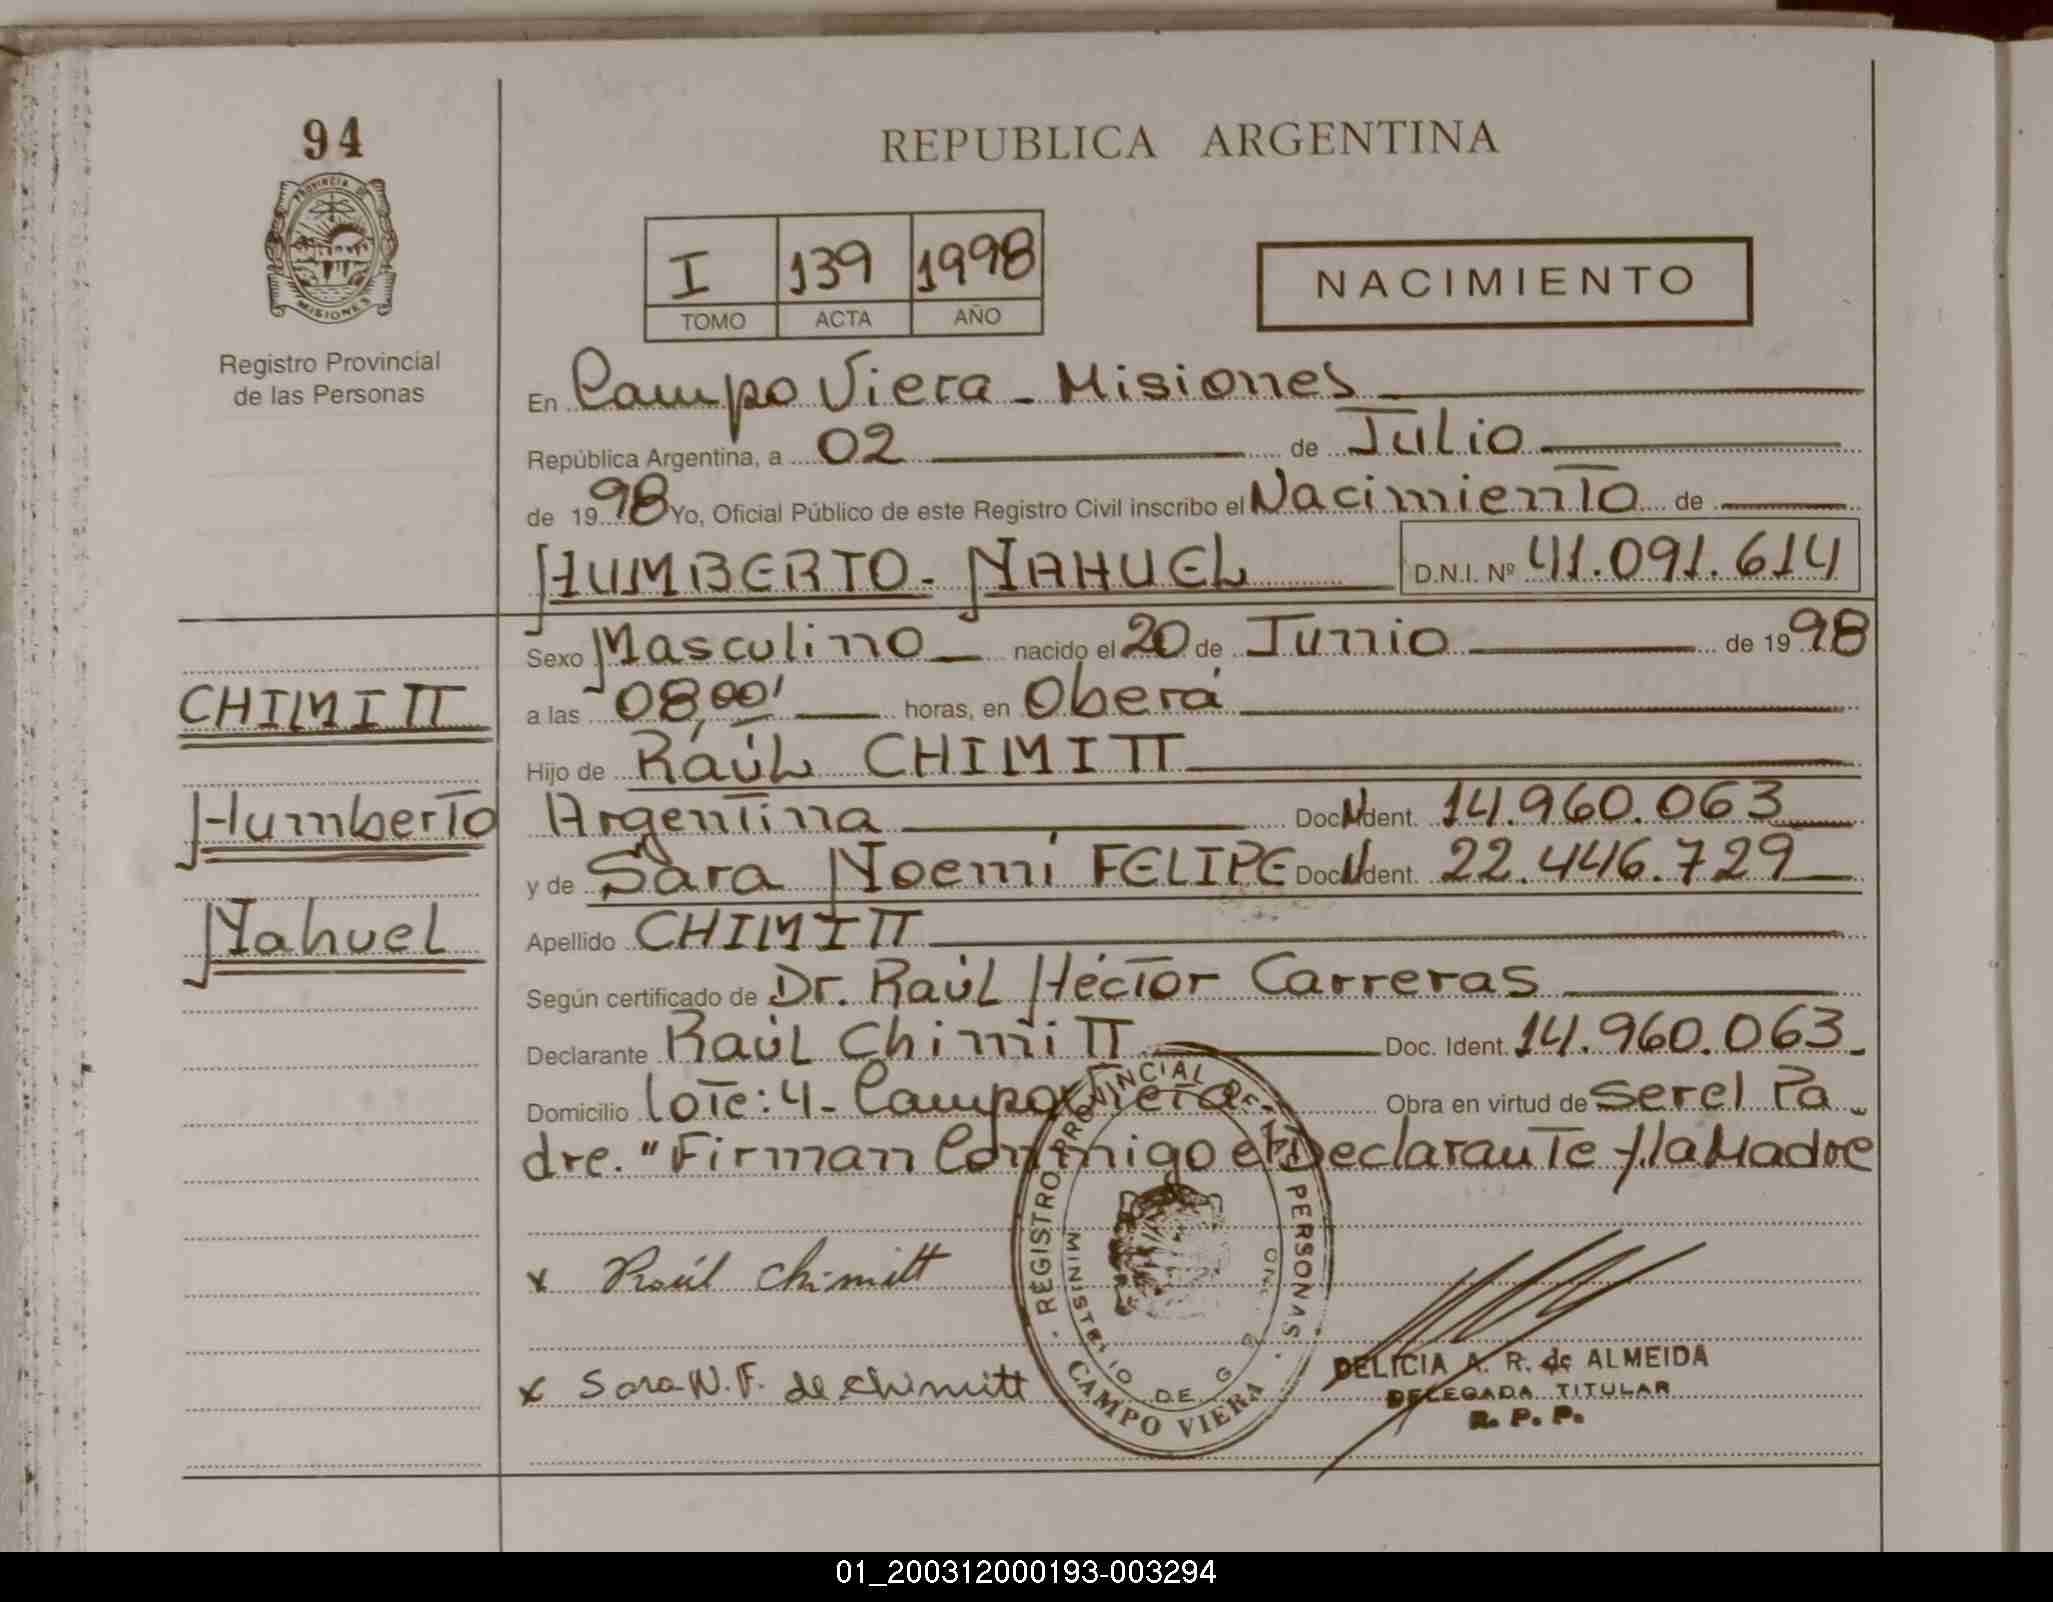 94
PROVINCIA DE
MISIONES
Registro Provincial
de las Personas
REPUBLICA ARGENTINA
I 139 1998
TOMO ACTA AÑO
NACIMIENTO
En Campo Viera - Misiones
República Argentina, a 02 de Julio
de 1998 Yo, Oficial Público de este Registro Civil inscribo el Nacimiento de
HUMBERTO - NAHUEL D.N.I. Nº 41.091.614
Sexo Masculino nacido el 20 de Junio de 1998
a las 08,00' horas, en Oberá
Hijo de Raúl CHIMITT
Argentina Doc. Ident. 14.960.063
y de Sara Noemí FELIPE Doc. Ident. 22.446.729
Apellido CHIMITT
Según certificado de Dr. Raúl Héctor Carreras
Declarante Raúl Chimitt Doc. Ident. 14.960.063
Domicilio lote: 4 - Campo Viera Obra en virtud de ser el Pa
dre. "Firman Conmigo el Declarante y la Madre
x Raúl Chimitt
x Sara N. F. de Chimitt
CHIMITT
Humberto
Nahuel
REGISTRO PROVINCIAL DE LAS PERSONAS
MINISTERIO DE G
CAMPO VIERA
DELICIA A. R. de ALMEIDA
DELEGADA TITULAR
R. P. P.
01_200312000193-003294